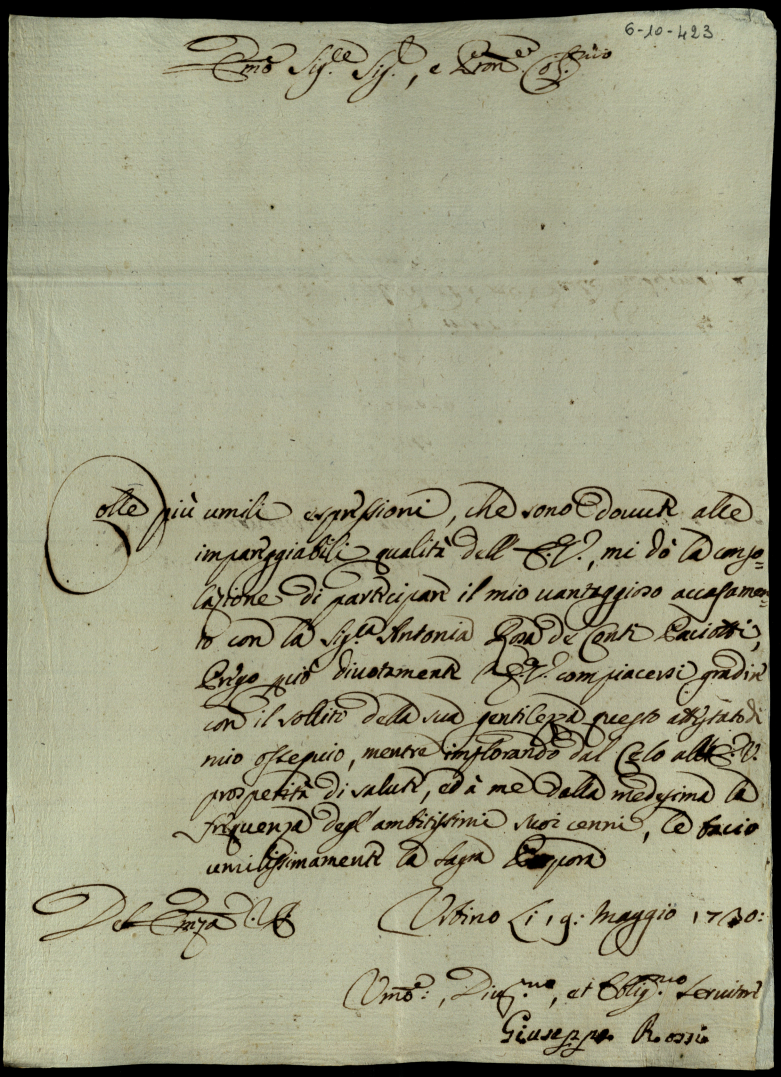 6-10-423
Emo Sig.re Sig.r, e Pron.e Co͞s.mo
Colle più umili espressioni, che sono dovute alle
impareggiabili qualità dell' E.V., mi dò la conso=
lazione di participare il mio vantaggioso accasamen=
to con la Sig.ra Antonia Rosa de Conti Paciotti,
Prego più divotamente V.E. compiacersi gradire
con il solito della sua gentilezza questo attestato di
mio ossequio, mentre implorando dal Celo all' E.V.
prosperità di salute, ed à me dalla medesima la
frequenza degl' ambitissimi suoi cenni, le bacio
umilissimamente la Sagra Porpora
Dell' Emza V.
Urbino li 19: Maggio 1730:
Vmo:, Div.mo, et Oblig.mo Servitore
Giuseppe Rossi